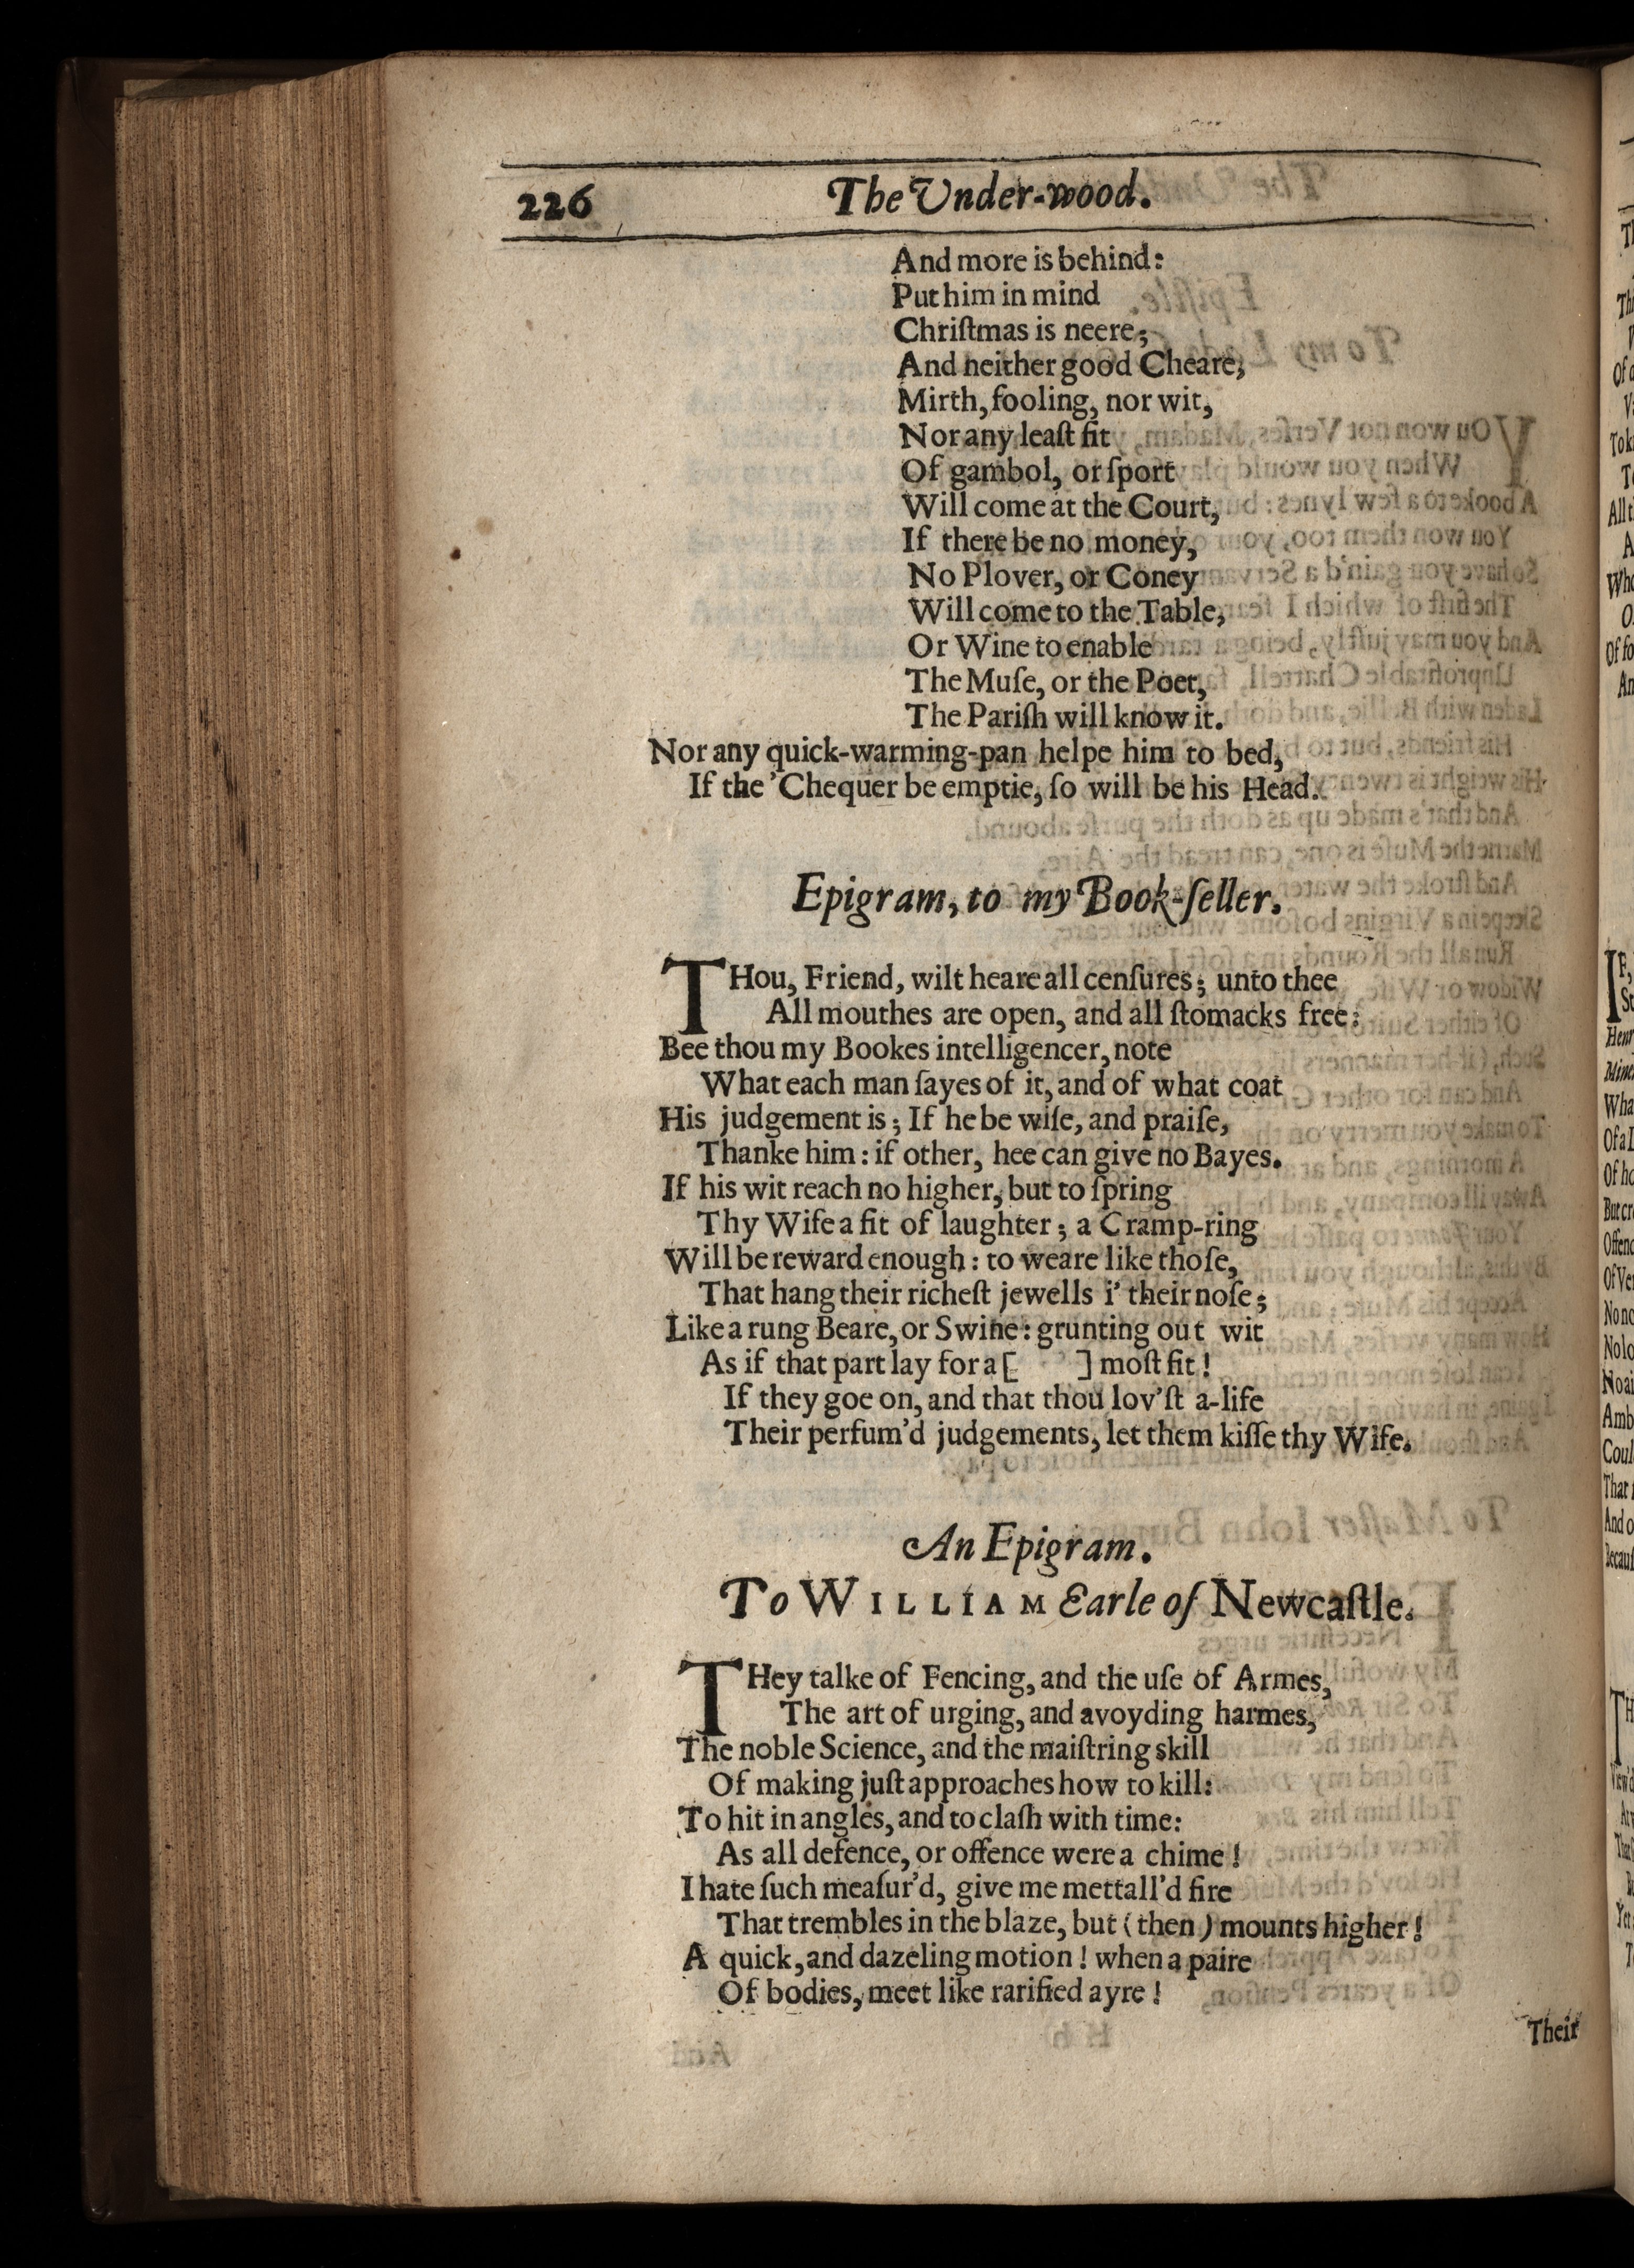 226 The Under-wood.
And more is behind:
Put him in mind
Chriſtmas is neere;
And neither good Cheare,
Mirth, fooling, nor wit,
Nor any leaſt fit
Of gambol, or ſport
Will come at the Court,
If there be no money,
No Plover, or Coney
Will come to the Table,
Or Wine to enable
The Muſe, or the Poet,
The Pariſh will know it.
Nor any quick-warming-pan helpe him to bed,
If the 'Chequer be emptie, ſo will be his Head.
Epigram, to my Book-ſeller.
THou, Friend, wilt heare all cenſures; unto thee
All mouthes are open, and all ſtomacks free:
Bee thou my Bookes intelligencer, note
What each man ſayes of it, and of what coat
His judgement is; If he be wiſe, and praiſe,
Thanke him: if other, hee can give no Bayes.
If his wit reach no higher, but to ſpring
Thy Wife a fit of laughter; a Cramp-ring
Will be reward enough: to weare like thoſe,
That hang their richeſt jewells i' their noſe;
Like a rung Beare, or Swine: grunting out wit
As if that part lay for a [ ] moſt fit!
If they goe on, and that thou lov'ſt a-life
Their perfum'd judgements, let them kiſſe thy Wife.
An Epigram.
To WILLIAM Earle of Newcaſtle.
THey talke of Fencing, and the uſe of Armes,
The art of urging, and avoyding harmes,
The noble Science, and the maiſtring skill
Of making juſt approaches how to kill:
To hit in angles, and to claſh with time:
As all defence, or offence were a chime!
I hate ſuch meaſur'd, give me mettall'd fire
That trembles in the blaze, but (then) mounts higher!
A quick, and dazeling motion! when a paire
Of bodies, meet like rarified ayre!
Their